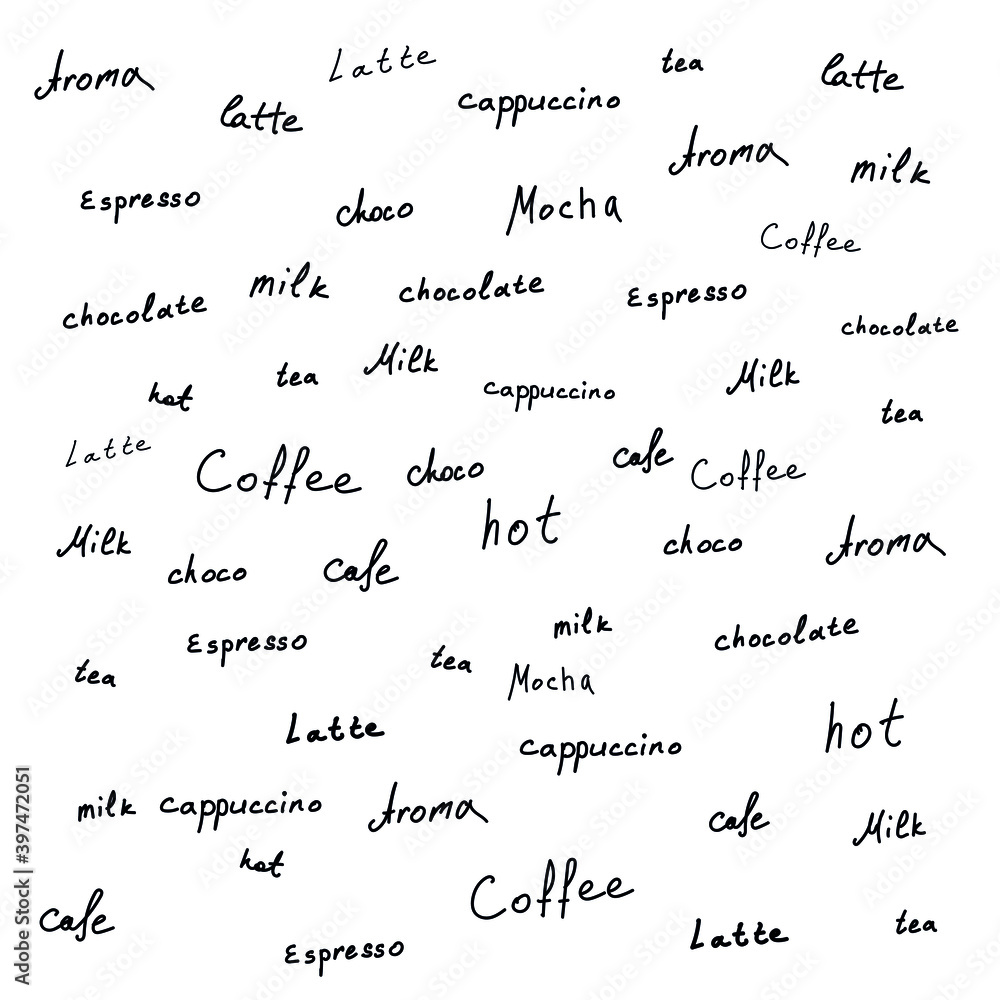 Aroma
Latte
tea
latte
latte
cappuccino
Aroma
milk
Espresso
choco
Mocha
Coffee
chocolate
milk
chocolate
Espresso
chocolate
hot
tea
Milk
cappuccino
Milk
tea
Latte
Coffee
choco
cafe
Coffee
Milk
choco
cafe
hot
choco
Aroma
Espresso
milk
chocolate
tea
tea
Mocha
Latte
cappuccino
hot
milk
cappuccino
Aroma
cafe
Milk
hot
Coffee
cafe
Espresso
Latte
tea
Adobe Stock | #397472051